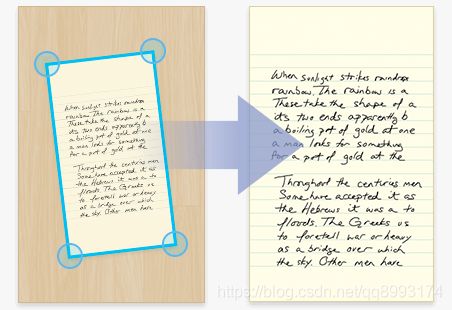 When sunlight strikes raindrop
rainbow. The rainbow is a
These take the shape of a
its two ends apparently b
a boiling pot of gold at one
a man looks for something
for a pot of gold at the
Throughout the centuries men
Some have accepted it as
the Hebrews it was a to
floods. The Greeks us
to foretell war or heavy
as a bridge over which
the sky. Other men have
When sunlight strikes raindrop
rainbow. The rainbow is a
These take the shape of a
its two ends apparently b
a boiling pot of gold at one
a man looks for something
for a pot of gold at the
Throughout the centuries men
Some have accepted it as
the Hebrews it was a to
floods. The Greeks us
to foretell war or heavy
as a bridge over which
the sky. Other men have
https://blog.csdn.net/qq8993174